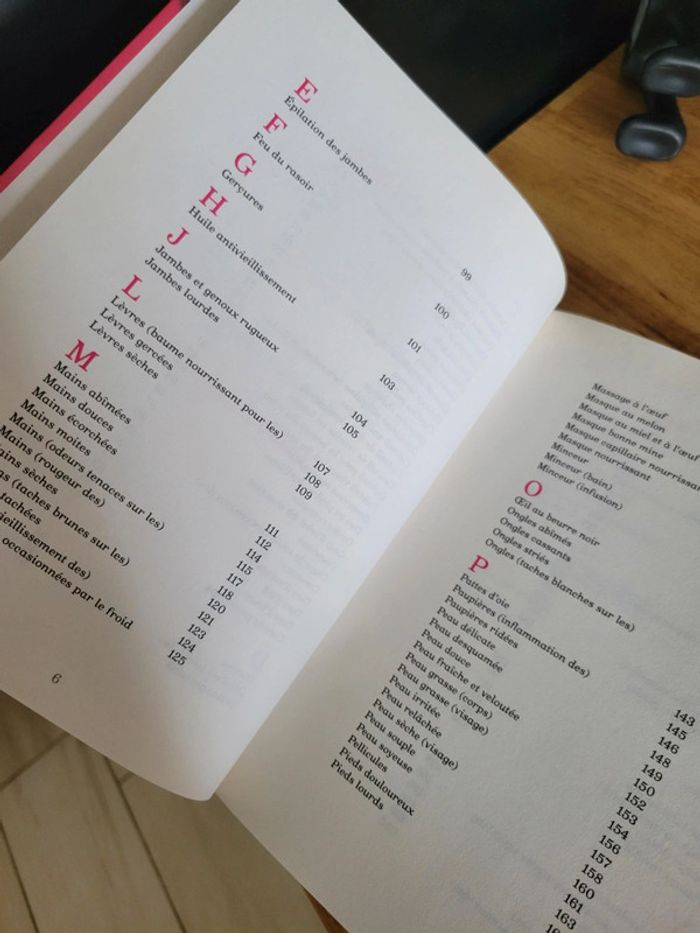 E
Épilation des jambes 99
F
Feu du rasoir 100
G
Gerçures 101
H
Huile antivieillissement 103
J
Jambes et genoux rugueux 104
Jambes lourdes 105
L
Lèvres (baume nourrissant pour les) 107
Lèvres gercées 108
Lèvres sèches 109
M
Mains abîmées 111
Mains douces 112
Mains écorchées 114
Mains moites 115
Mains (odeurs tenaces sur les) 117
Mains (rougeur des) 118
sèches 120
(taches brunes sur les) 121
tachées 123
des) 124
occasionnées par le froid 125
6
Massage à l'œuf
Masque au melon
Masque au miel et à l'œuf
Masque bonne mine
Masque capillaire nourrissant
Masque nourrissant
Minceur
Minceur (bain)
Minceur (infusion)
O
Œil au beurre noir
Ongles abîmés
Ongles cassants
Ongles striés
Ongles (taches blanches sur les)
P
Pattes d'oie
Paupières (inflammation des)
Paupières ridées
Peau délicate
Peau desquamée
Peau douce
Peau fraîche et veloutée
Peau grasse (corps)
Peau grasse (visage)
Peau irritée
Peau relâchée
Peau sèche (visage)
Peau souple
Peau soyeuse
Pellicules
Pieds douloureux
Pieds lourds
143
145
146
148
149
150
152
153
154
156
157
158
160
161
163